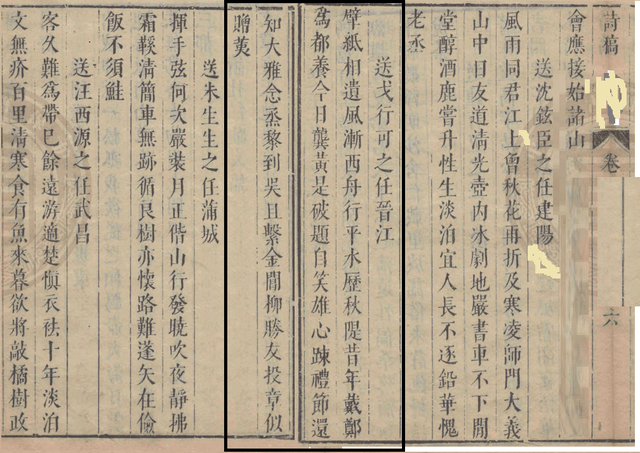 詩稿 卷 六
會應接始諸山
送沈鉉臣之任建陽
風雨同君江上曾秋花再折及寒凌師門大義
山中日友道清光壺内冰劇地嚴書車不下閒
堂醇酒鹿當升性生淡泊宜人長不逐鉛華愧
老丞
送戈行可之任晉江
擘紙相遺風漸西舟行平水歷秋隄昔年戴鄭
為都養今日龔黃是破題自笑雄心踈禮節還
知大雅念烝黎到吳且繫金閶柳勝友投章似
贈荑
送朱生生之任蒲城
揮手弦何次嚴裝月正偕山行發曉吹夜靜拂
霜鞵清簡車無跡循良樹亦懷路難逢矢在儉
飯不須鮭
送汪西源之任武昌
客久難為帶巳餘遠游適楚愼衣袪十年淡泊
文無疥百里清寒食有魚來暮欲將敲橘樹政